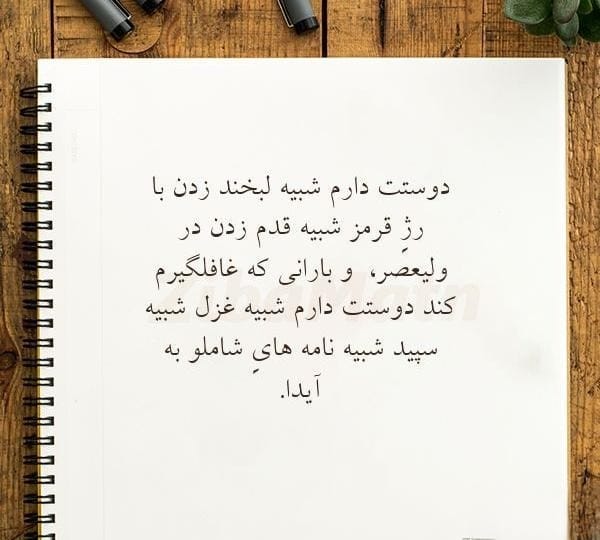 دوستت دارم شبیه لبخند زدن با
رژِ قرمز شبیه قدم زدن در
ولیعصر، و بارانی که غافلگیرم
کند دوستت دارم شبیه غزل شبیه
سپید شبیه نامه هایِ شاملو به
آیدا.